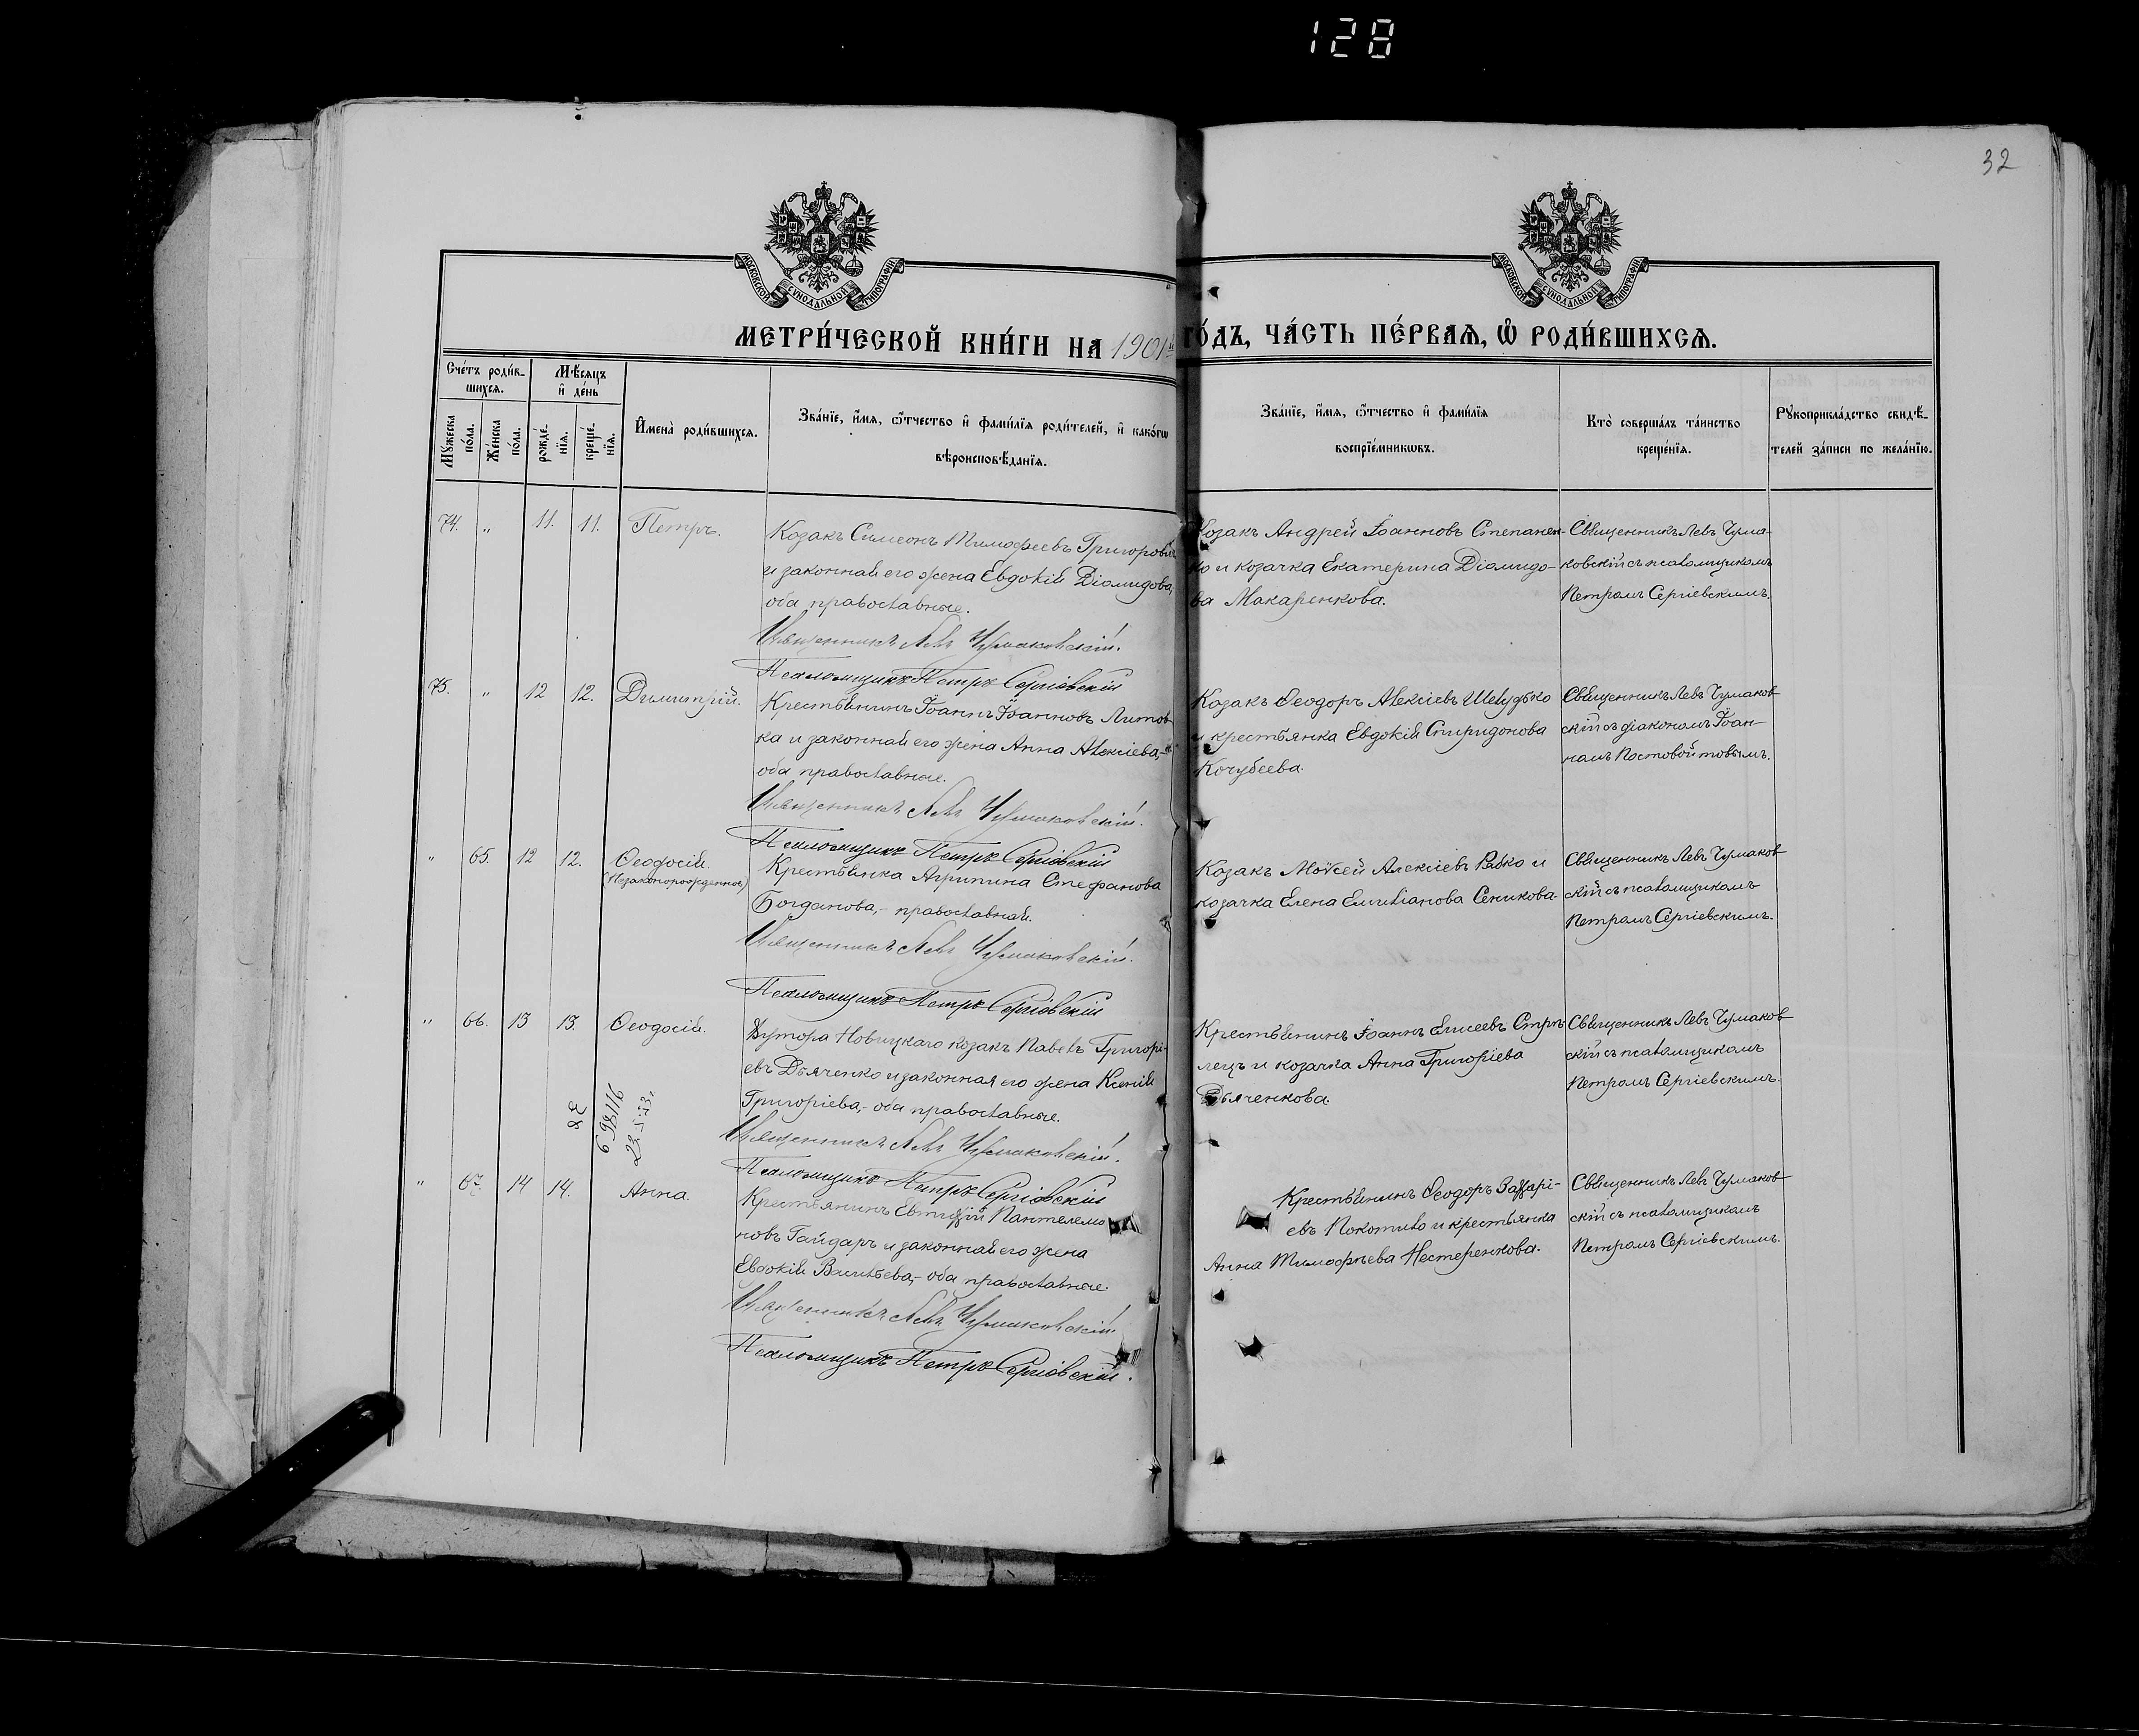 128
32
МОСКОВСКОЙ СѴНОДАЛЬНОЙ ТИПОГРАФІИ
МОСКОВСКОЙ СѴНОДАЛЬНОЙ ТИПОГРАФІИ
МЕТРИ́ЧЕСКОЙ КНИ́ГИ НА 1901й ГО́ДЪ, ЧА́СТЬ ПЕ́РВАѦ, Ѿ РОДИ́ВШИХСѦ.
Сче́тъ роди́в-
шихсѧ.
Мѣ́сѧцъ
и҆ де́нь
Мꙋжеска по́ла.
Же́нска по́ла.
рожде́-
нїѧ.
креще́-
нїѧ.
И҆мена̀ роди́вшихсѧ.
Зва́нїе, и҆́мѧ, ѻ҆́тчество и҆ фами́лїѧ роди́телей, и҆ како́гѡ
вѣроисповѣ́данїѧ.
Зва́нїе, и҆́мѧ, ѻ҆́тчество и҆ фами́лїѧ
воспрїе́мникѡвъ.
Кто̀ соверша́лъ та́инство
креще́нїѧ.
Рꙋкоприкла́дство свидѣ́-
телей за́писи по жела́нїю.
74. " 11. 11. Петръ.
Козакъ Симеонъ Тимофеевъ Григорович
и законная его жена Евдокія Діомидова,
оба православные.
Священникъ Левъ Чумаковскій.
Псаломщикъ Петръ Сергіевскій
Козакъ Андрей Іоанновъ Степанен-
ко и козачка Екатерина Діомидо-
ва Макаренкова.
Священникъ Левъ Чума-
ковскій съ псаломщикомъ
Петромъ Сергіевскимъ.
75. " 12 12. Димитрій.
Крестьянинъ Іоаннъ Іоанновъ Литов-
ка и законная его жена Анна Алексіева,-
оба православные.
Священникъ Левъ Чумаковскій.
Псаломщикъ Петръ Сергіевскій
Козакъ Ѳеодоръ Алексіевъ Шелудько
и крестьянка Евдокія Спиридонова
Кочубеева.
Священникъ Левъ Чумаков-
скій съ діакономъ Іоан-
номъ Постовойтовымъ.
" 65. 12 12. Ѳеодосія.
(Незаконорожденная)
Крестьянка Агрипина Стефанова
Богданова,- православная.
Священникъ Левъ Чумаковскій.
Псаломщикъ Петръ Сергіевскій
Козакъ Моѵсей Алексіевъ Рабко и
козачка Елена Емиліанова Сенкова.
Священникъ Левъ Чумаков-
скій съ псаломщикомъ
Петромъ Сергіевскимъ.
" 66. 13 13. Ѳеодосія.
Хутора Новицкаго козакъ Павелъ Григорі-
евъ Дьяченко и законная его жена Ксенія
Григоріева,- оба православные.
Священникъ Левъ Чумаковскій.
Псаломщикъ Петръ Сергіевскій
Крестьянинъ Іоаннъ Елисеевъ Стрѣ-
лецъ и козачка Анна Григоріева
Дьяченкова.
Священникъ Левъ Чумаков-
скій съ псаломщикомъ
Петромъ Сергіевскимъ.
" 67. 14 14. Анна.
Крестьянинъ Евтихій Пантелемо-
новъ Гайдаръ и законная его жена
Евдокія Васильева,- оба православные.
Священникъ Левъ Чумаковскій.
Псаломщикъ Петръ Сергіевскій.
Крестьянинъ Ѳеодоръ Захарі-
евъ Покотило и крестьянка
Анна Тимофѣева Нестеренкова.
Священникъ Левъ Чумаков-
скій съ псаломщикомъ
Петромъ Сергіевскимъ.